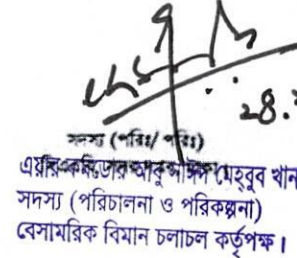 28.
সদস্য (পরিঃ/ পরিঃ)
এয়ার কমডোর মেহবুব খান
সদস্য (পরিচালনা ও পরিকল্পনা)
বেসামরিক বিমান চলাচল কর্তৃপক্ষ।